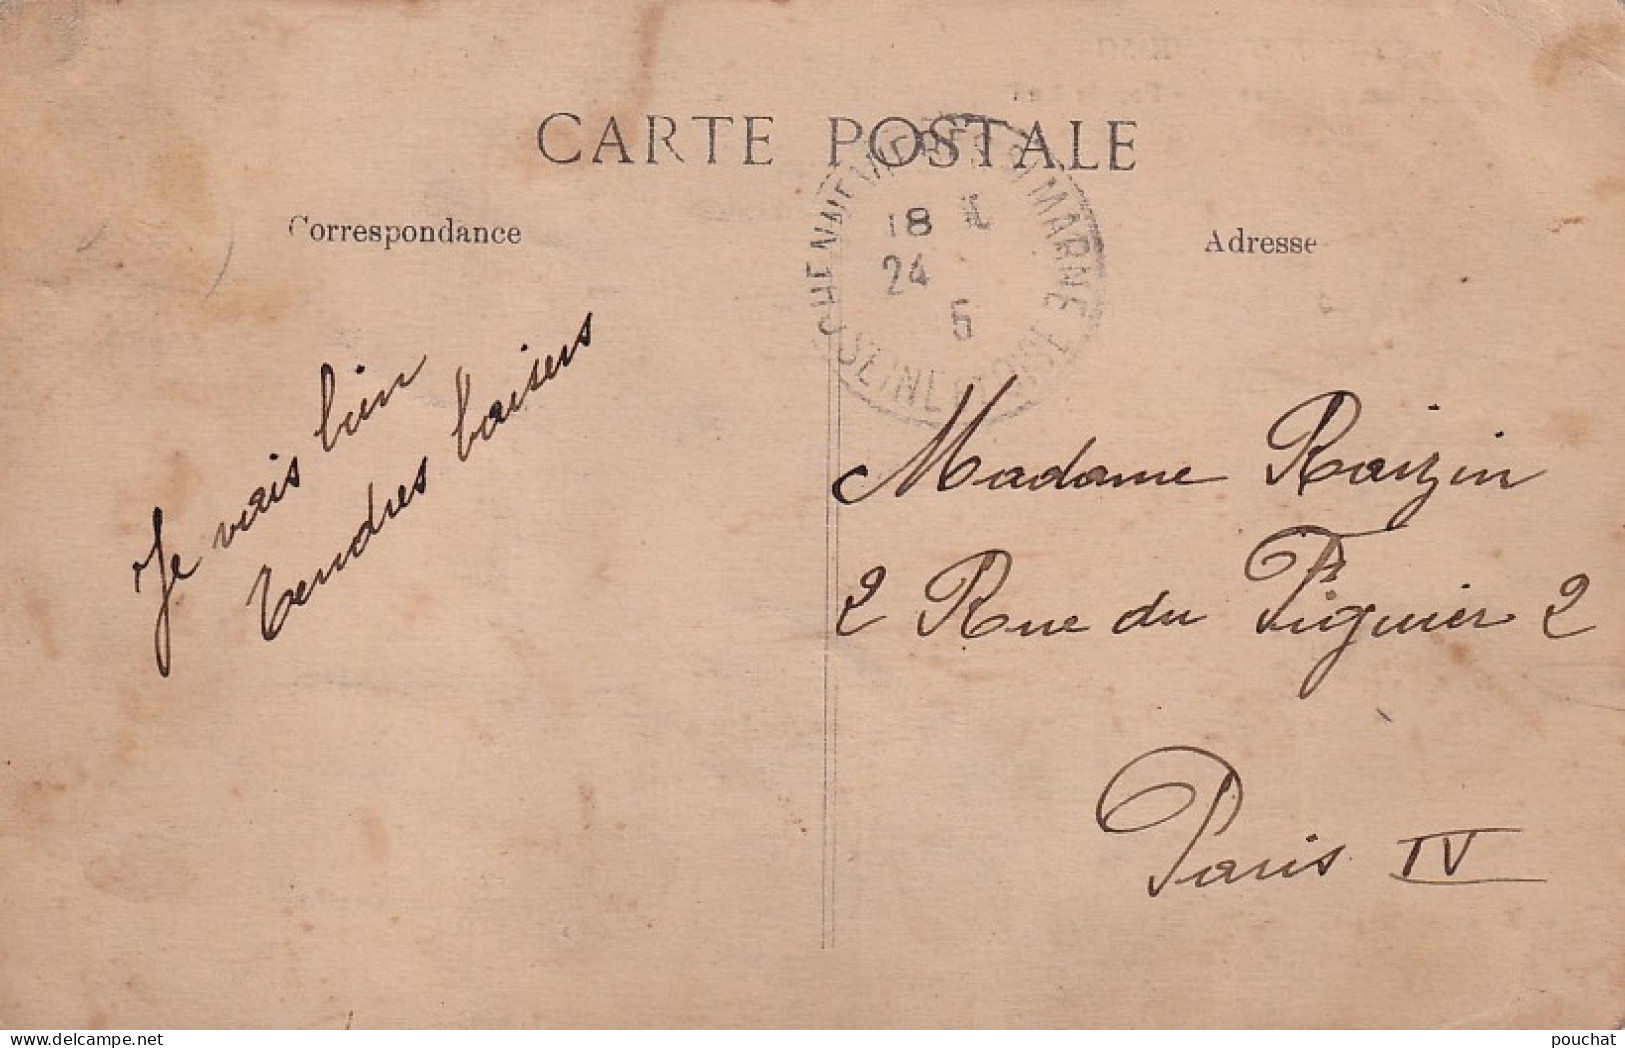 CARTE POSTALE
Correspondance
Adresse
CHENNEVIERES S/ MARNE
18
24
5
SEINE & OISE
Je vais bien
tendres baisers
Madame Raizin
2 Rue du Figuier 2
Paris IV
pouchat